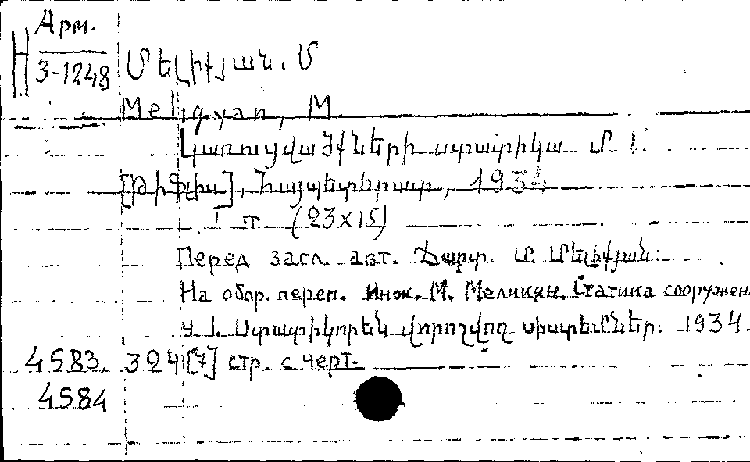 Арм.
Н 3-1248 Մելիքյան. Մ
Meliqyan, M
Կառուցվածքների ստատիկա Մ. 1.
[Թիֆլիս], Հայպետհրատ, 1934
1 т (23х15)
Перед засл. авт. Ճարտ. Մ. Մելիքյան.
На обор. переп. Инж. М. Меликян. Статика сооружен.
Ч. 1. Ստատիկորեն վորոշվող սիստեմներ. 1934
4583. 324[7] стр. с черт.
4584